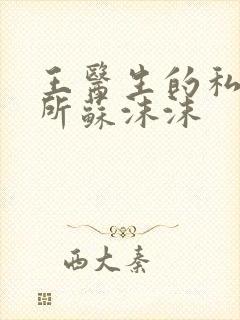 王醫生的私
所蘇沫沫
西大秦